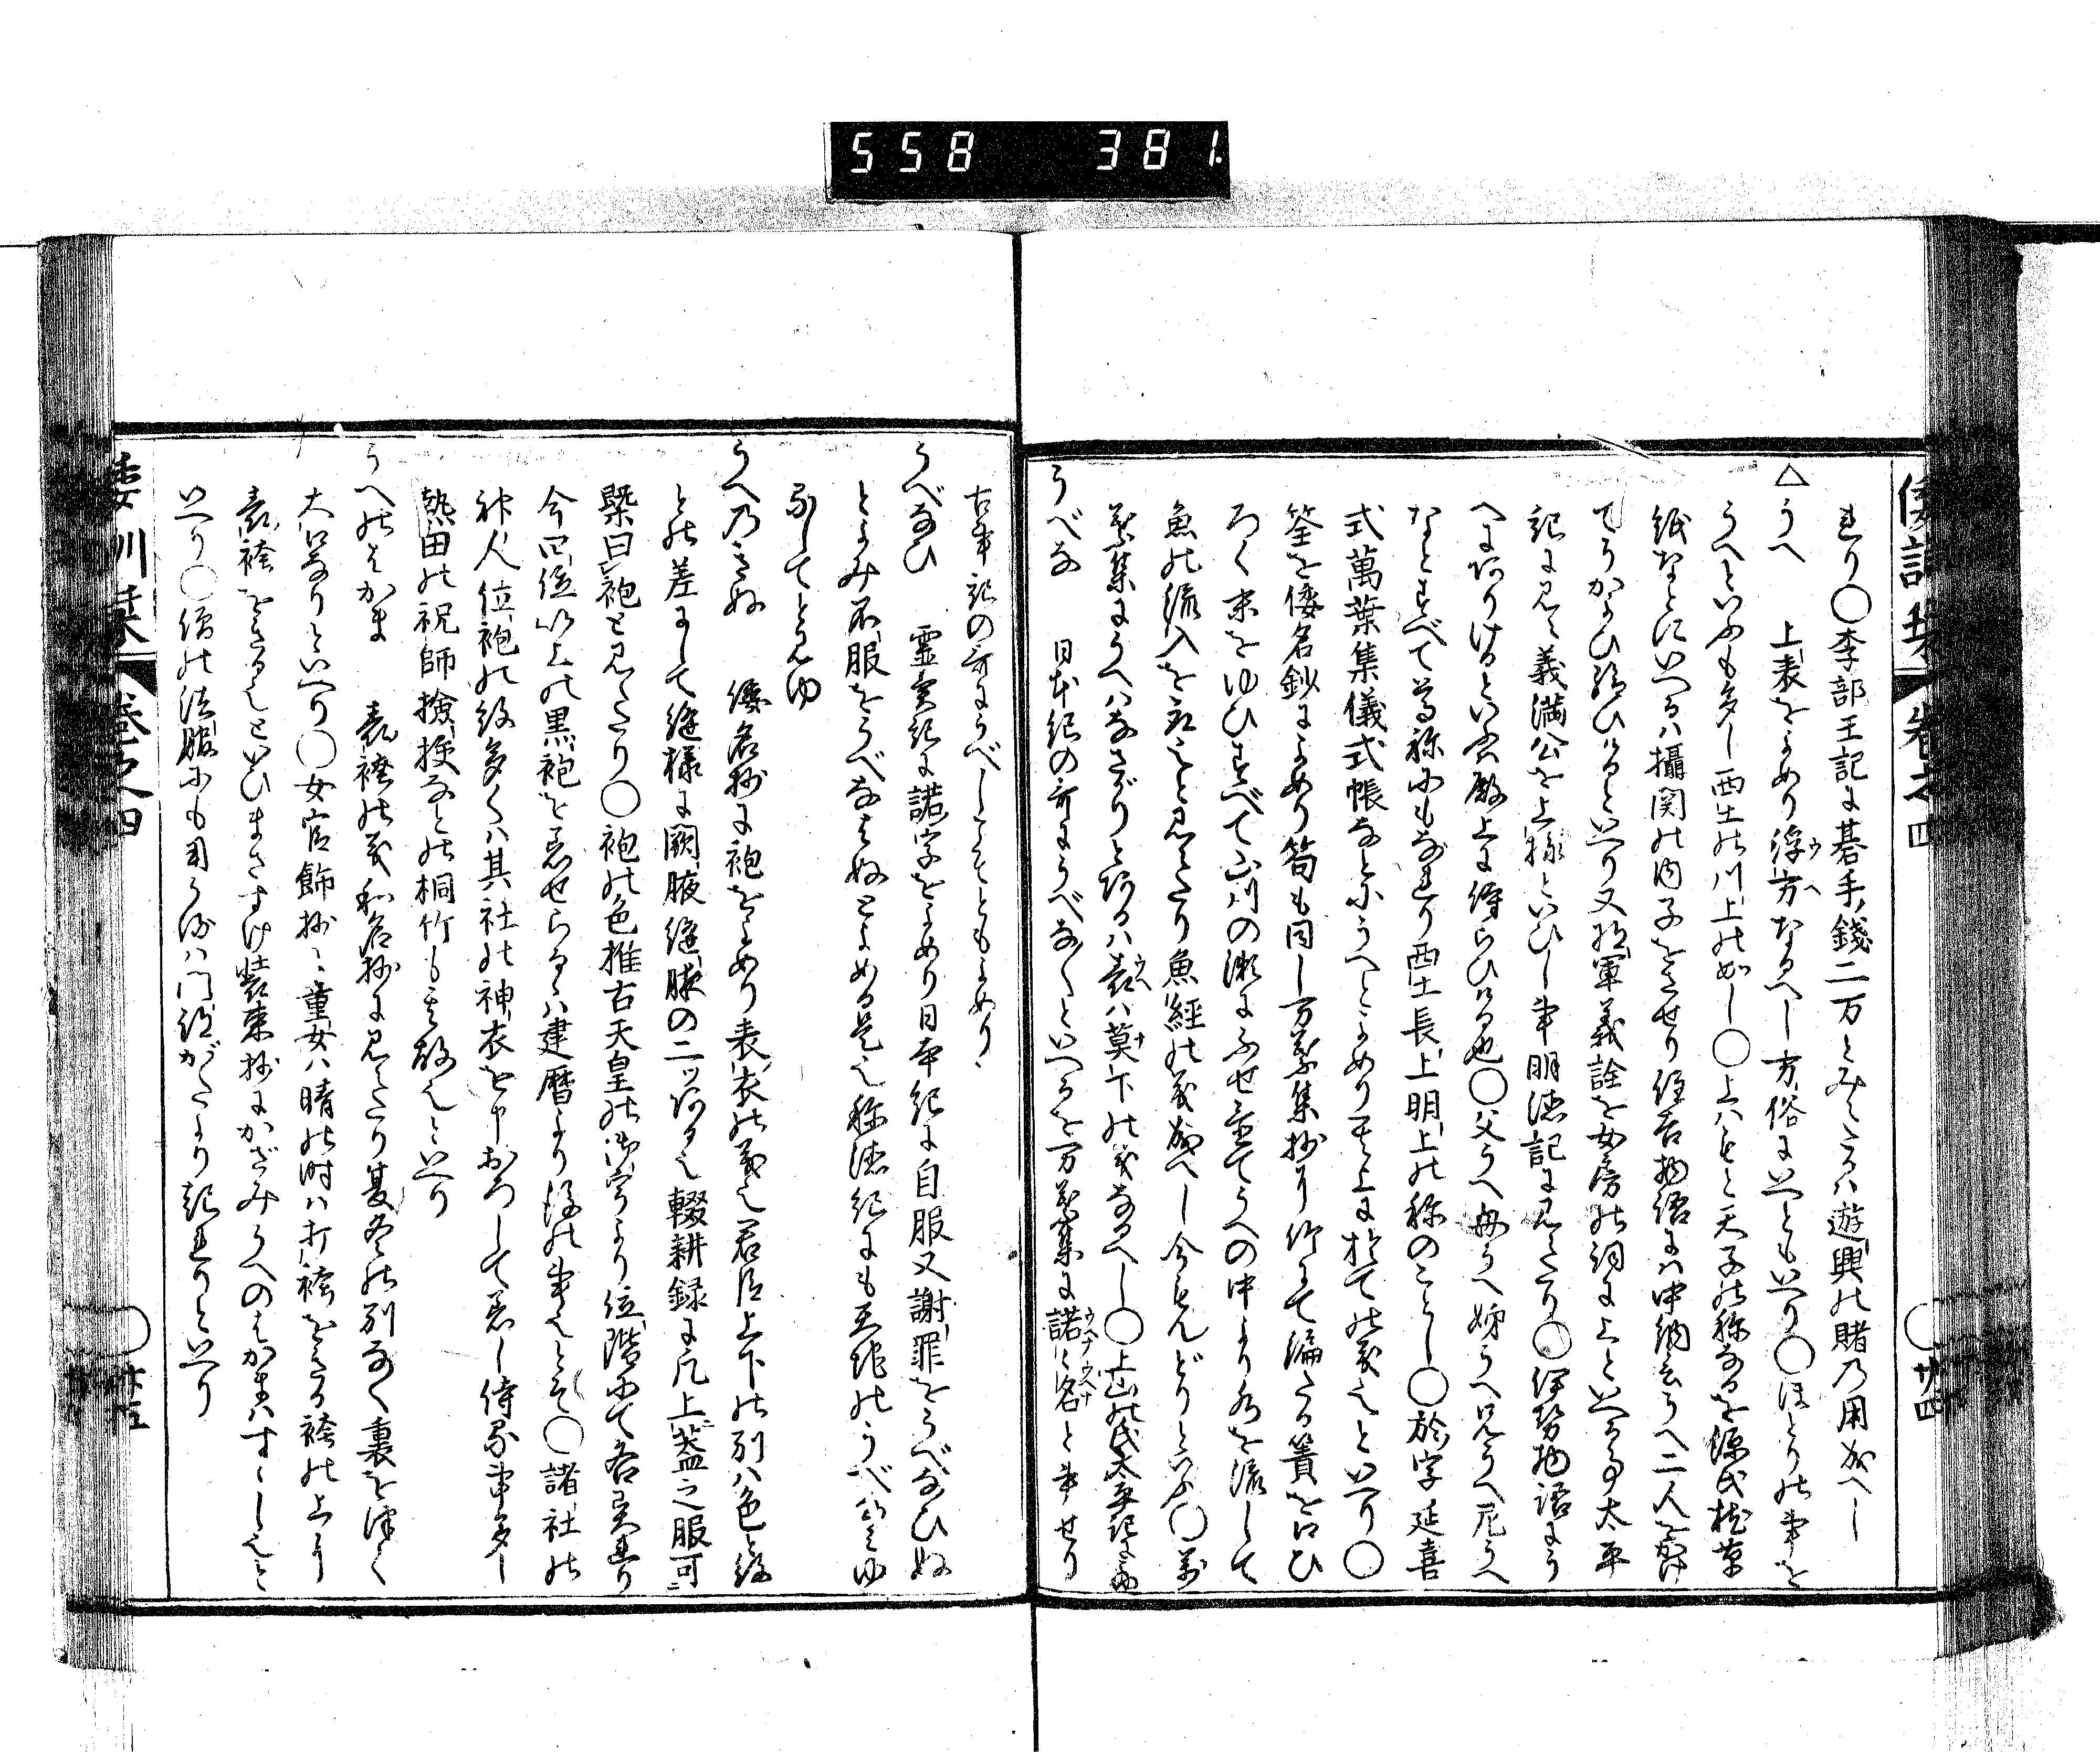 558 381
倭訓栞 巻之四 ○ 廿四
れり○李部王記に碁手錢二万とみえたるハ遊興の賭乃用成へし
△うへ 上表をよめり浮方なるへし方俗にいへともいへり○ほとりの事を
うへといふも多し西土の川上の如し○上ハもと天子の称なるを源氏枕草
紙なとにいへるハ攝関の内子をさせり住吉物語には中納言うへ二人をかけ
てうかよひ給ひけるといへり又将軍義詮を女房の詞に上といへる事太平
記に見え義満公を上様といひし事明徳記に見えたり○伊勢物語にう
へにありけるといふハ殿上に侍らひける也○父うへ母うへ姉うへ兄うへ尼うへ
なとすべて尊称にもなれり西土長上明上の称のことし○於字延喜
式萬葉集儀式帳なとにうへとよめり其上に於ての義也といへり○
筌を倭名鈔によめり筍も同し万葉集抄に竹にて編たる簀を口ひ
ろく末をゆひすべて山川の瀬にふせ置てうへの中より水を流して
魚の流入を取也と見えたり魚經の義成へし今もんどりといふ○万
葉集にうへハなさがりとあるハ表ハ莫下の義なるへし○上山の氏太平記に有
うべな 日本紀の哥にうべな〳〵といへるを万葉集に諾々名と書せり
古事記の哥にうべしこそともよめり
うべなひ 霊異記に諾字をよめり日本紀に自服又謝罪をうべなひぬ
とよみ不服をうべなはぬとよめる是也称徳紀にも
おしてとみゆ
うへ乃きぬ 倭名抄に袍をよめり表衣の義也君臣上下の別ハ色と紋
との差にして縫様に闕腋縫腋の二ツある也輟耕録に凡上蓋之服可
槩曰袍と見えたり○袍の色推古天皇の御宇より位階にて各異れり
今四位以上の黒袍を着せらるゝハ建暦より後の事也とそ○諸社の
神人位袍の紋多くハ其社の神衣を申おろして着し侍る事多し
熱田の祝師撿挍なとの桐竹も其故也といへり
うへのはかま 表袴の義和名抄に見えたり夏冬の別なく裏を津く
大口なりといへり○女官飾抄に童女ハ晴の時ハ打袴をきる袴の上に
表袴をきるといひまさすけ装束抄にかざみうへのはかまハすゝしと
いへり○僧の法服にも用るハ門跡がたより起れりといへり
倭訓栞 巻之四 ○ 廿五